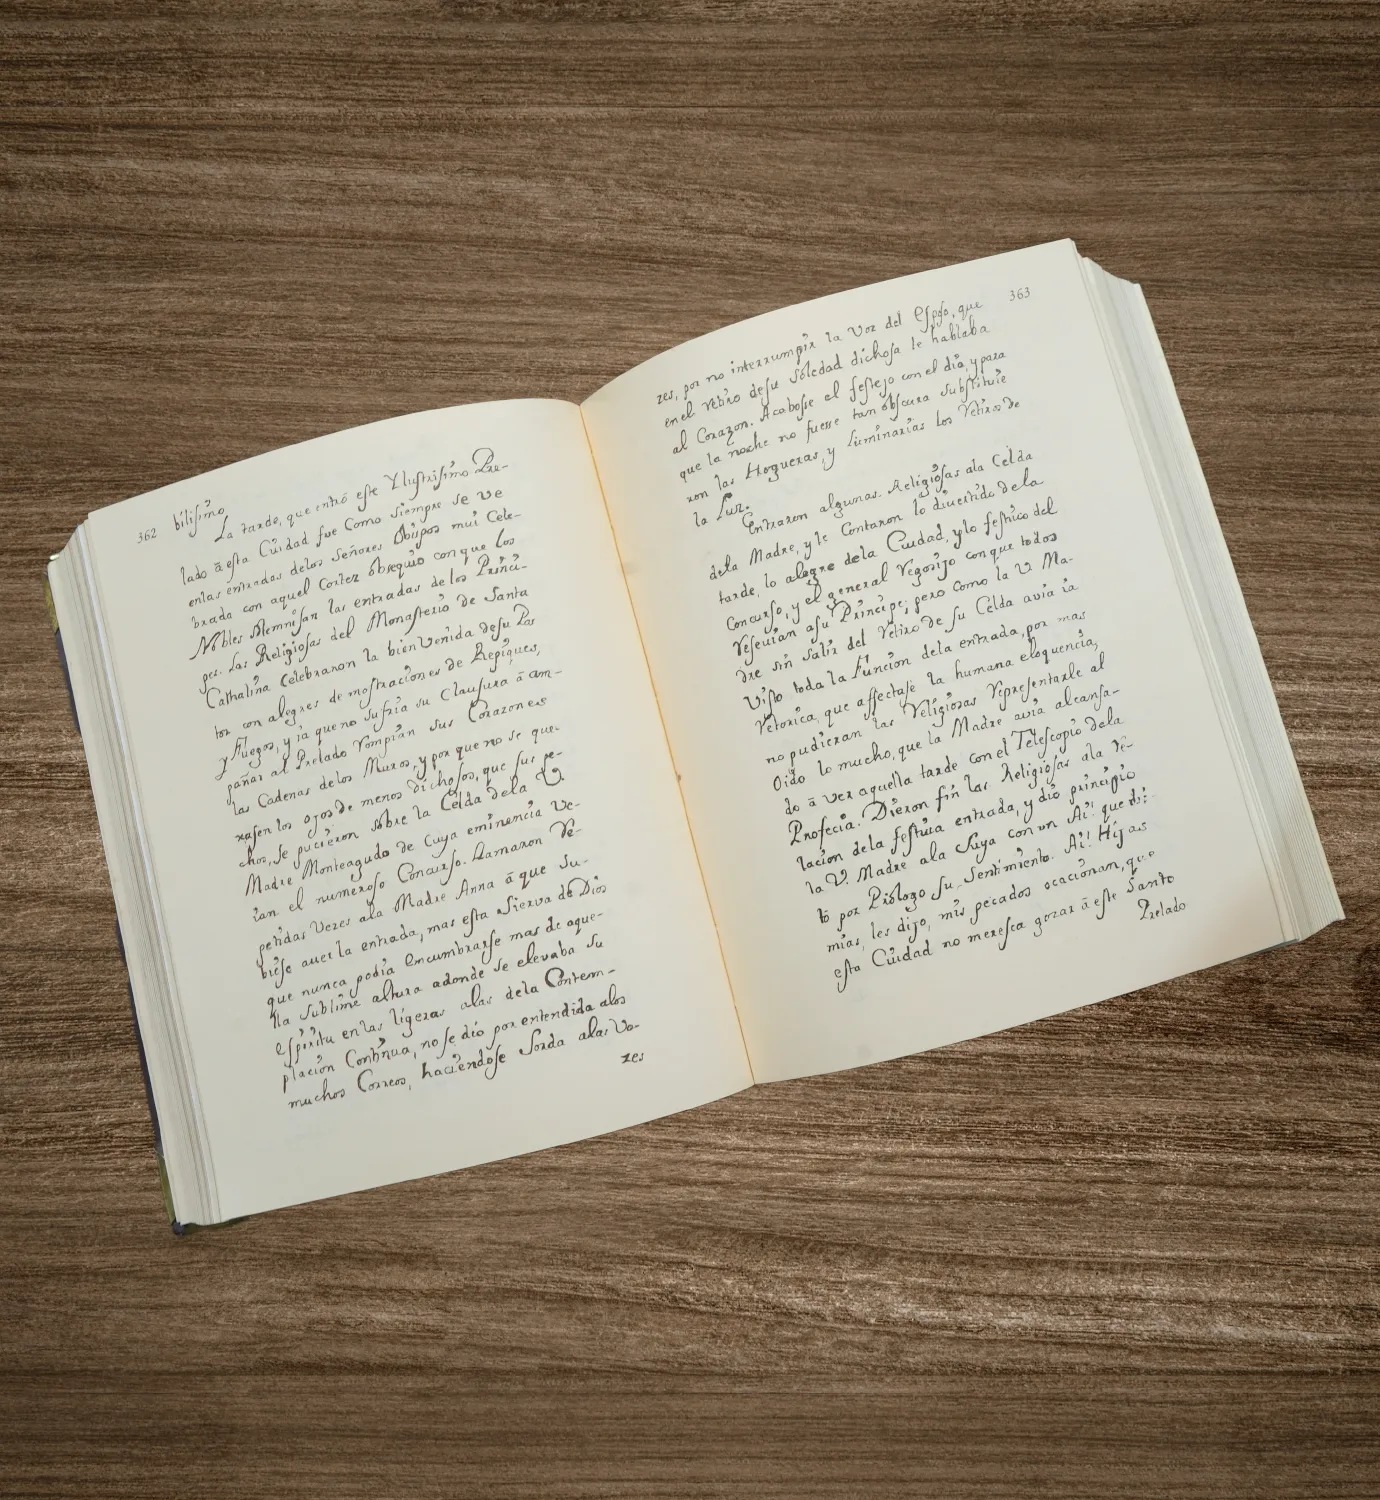 362
bilisimo.
La tarde, que entró este Ylustrisimo Pre-
lado â esta Cuidad fue Como siempre se ve
enlas entradas delos Señores Obispos mui Cele-
brada con aquel Cortez obsequio conque los
Nobles Memnisan las entradas de los Princi-
pes. Las Religiosas del Monasterio de Santa
Cathalina Celebraron la bien Venida desu Pas
tor con alegres de mostraciones de Repiques,
y Fuegos, y ia queno sufria su Clausura â am-
pañar al Prelado rompian sus Corazones
las Cadenas delos Muros, y por que no se que-
xasen los ojos de menos dichosos, que sus pe-
chos, se pucieron sobre la Celda dela V.
Madre Monteagudo de Cuya eminencia Ve-
ian el numeroso Concurso. Llamaron Re-
petidas Vezes ala Madre Anna â que Su-
biese aver la entrada, mas esta Sierva de Dios
que nunca podia Encumbrarse mas de aque-
lla Sublime altura adonde se elevaba Su
Espiritu enlas ligeras alas dela Contem-
placion Continua, no se dio por entendida alos
muchos Correos, haciendose Sorda alas Vo-
zes
363
zes, por no interrumpir la Voz del Esposo, que
enel retiro desu Soledad dichosa le hablaba
al Corazon. Acabosse el festejo con el dia, y para
que la noche no fuesse tan obscura substituie
ron las Hogueras, y Luminarias los Retiros de
la Luz.
Entraron algunas Religiosas ala Celda
dela Madre, y le Contaron lo divertido dela
tarde, lo alegre dela Cuidad, ylo festivo del
Concurso, y el general regosijo conque todos
reseuian asu Principe; pero como la V. Ma-
dre sin salir del Retiro de su Celda avia ia
Visto toda la Funcion dela entrada, por mas
Retorica, que affectase la humana eloquencia,
no pudieran las Religiosas representarle al
Oido lo mucho, que la Madre avia alcansa-
do â ver aquella tarde con el Telescopio dela
Profecia. Dieron fin las Religiosas ala re-
lacion dela festiua entrada, y dio principio
la V. Madre ala Suya con un Ai! que di-
tó por Prologo su Sentimiento. Ai! Hijas
mias, les dijo, mis pecados ocacionam, que
esta Cuidad no meresca gozar â este Santo
Prelado